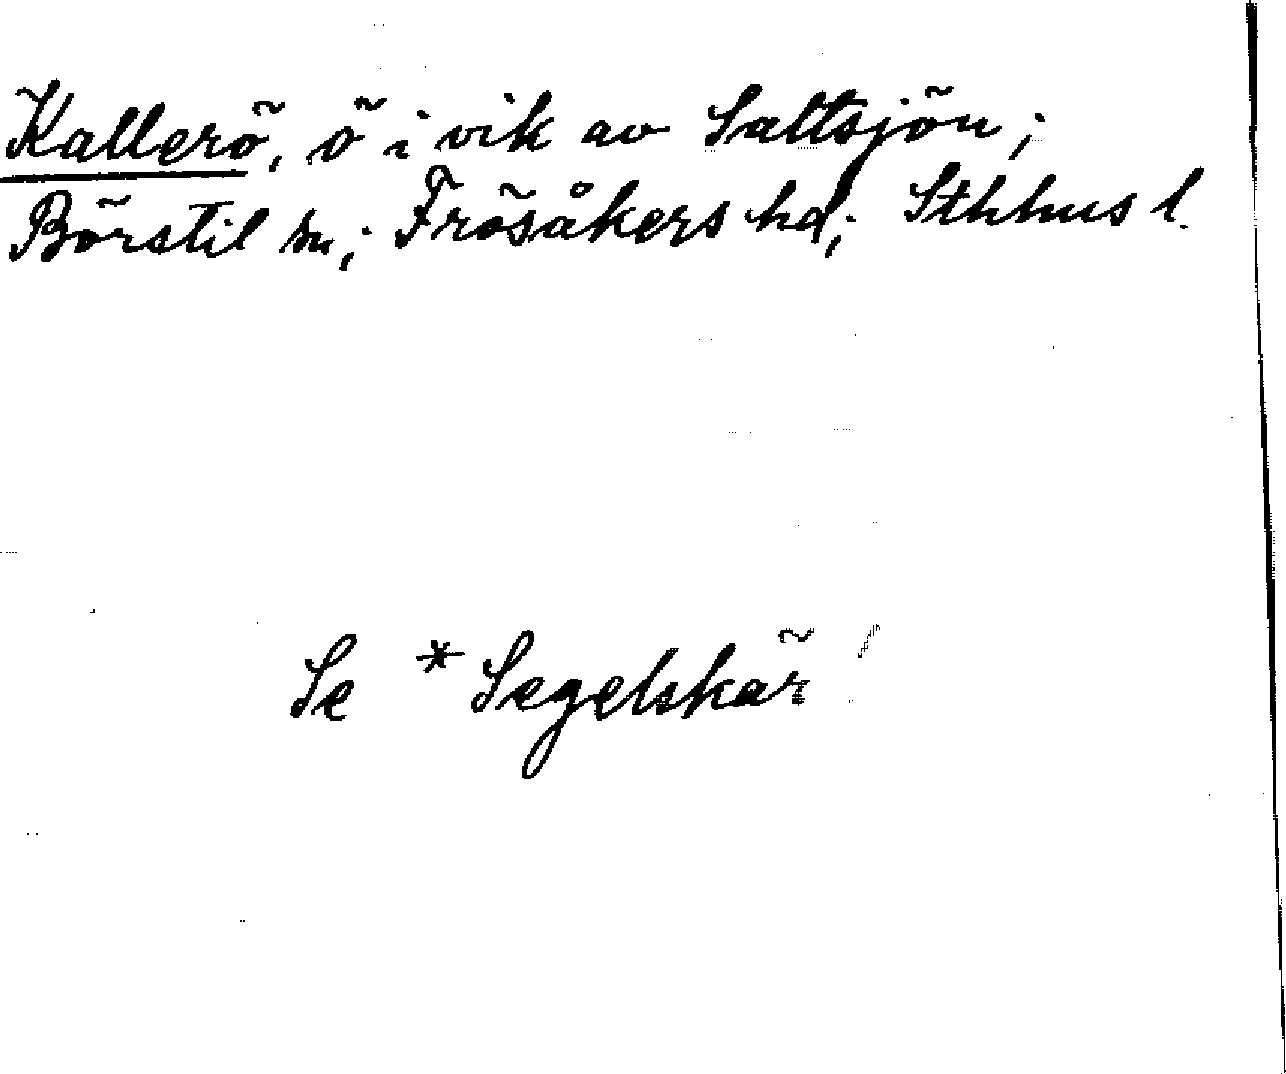 Kallerö, ö i vik av Saltsjön;
Börstil sn; Frösåkers hd; Sthhus l.
Se *Segelskär